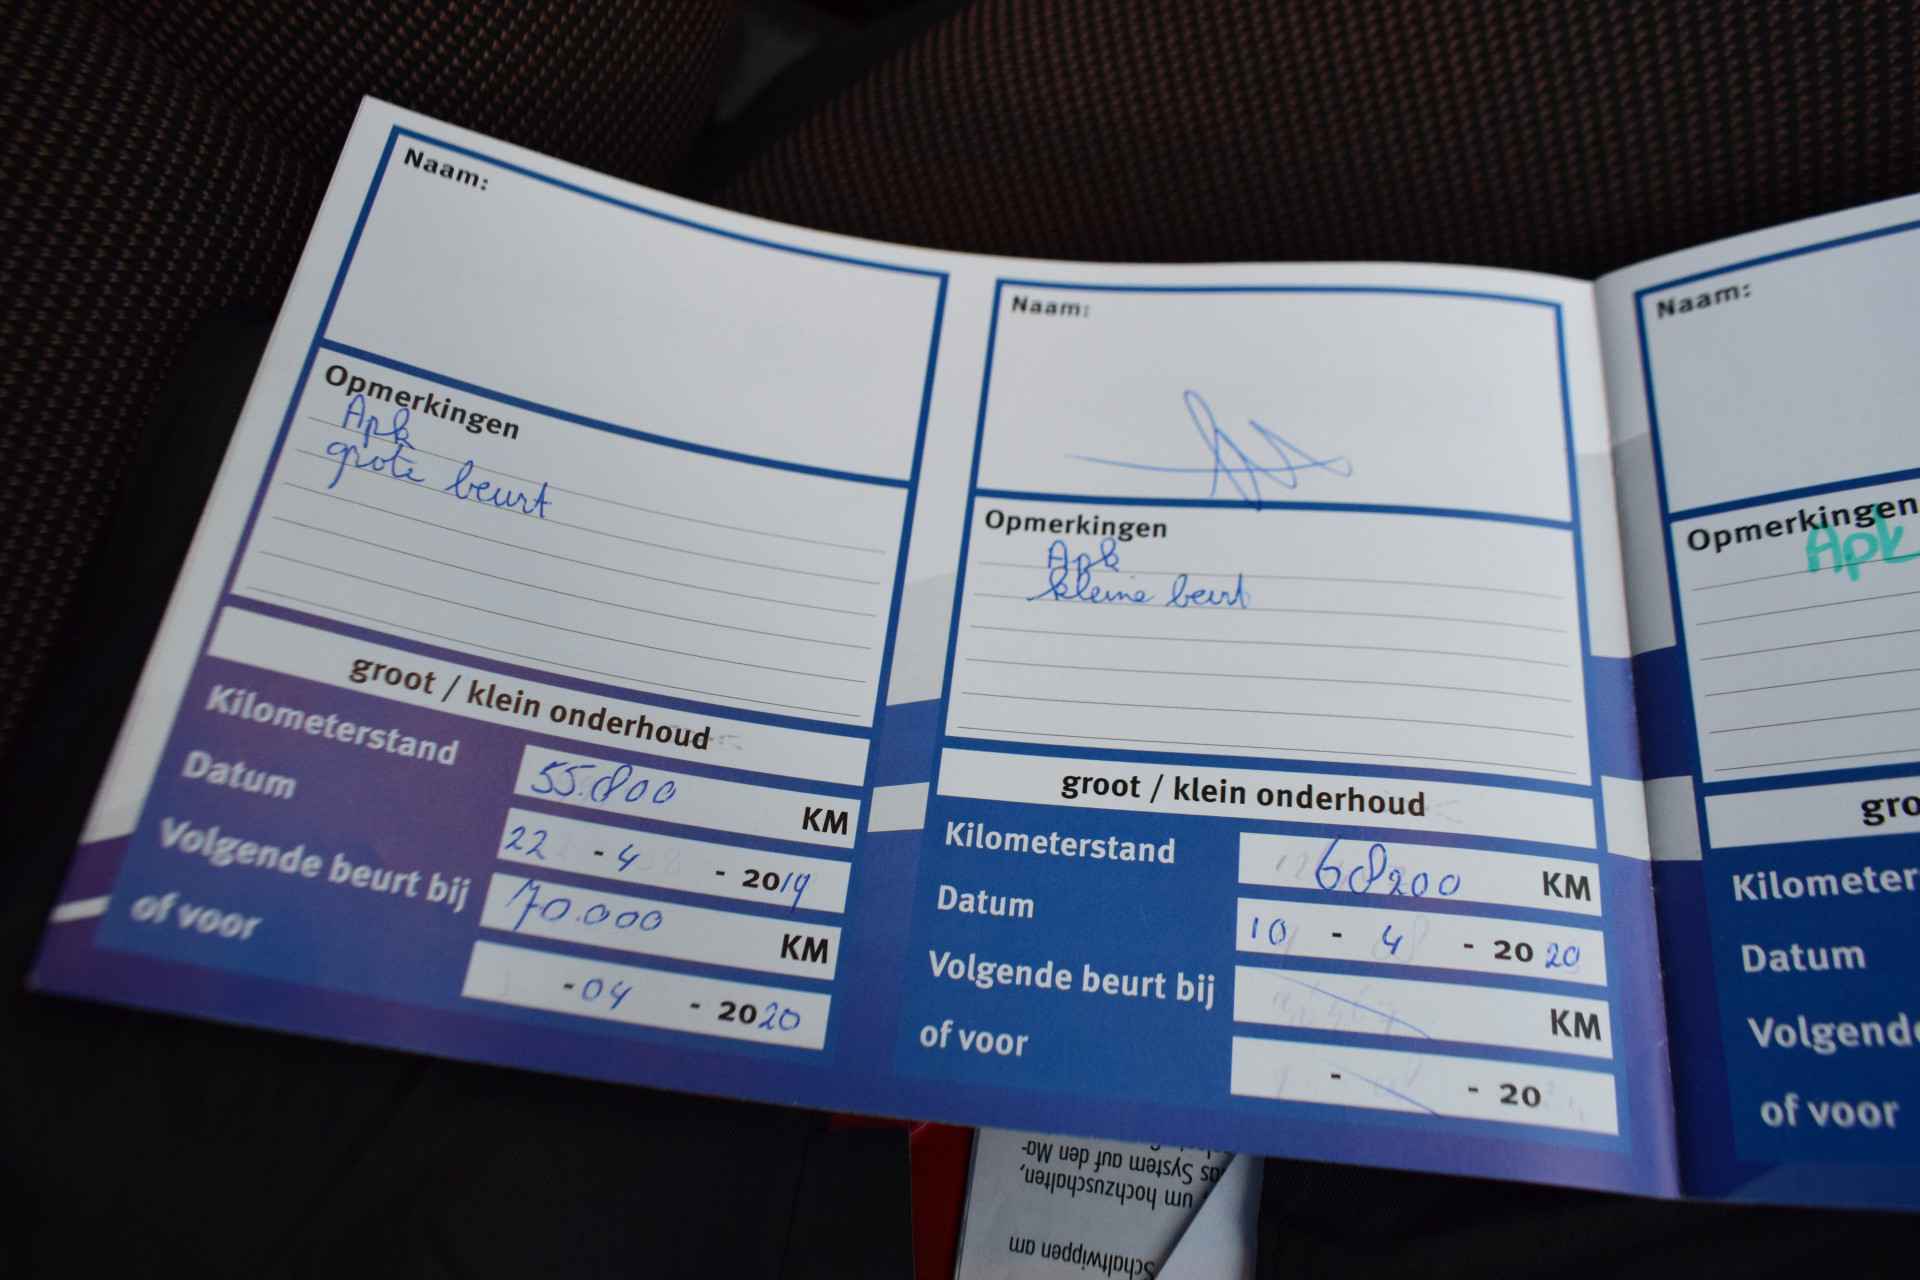 Naam:
Opmerkingen
Apk
grote beurt
groot / klein onderhoud
Kilometerstand 55.800 KM
Datum 22 - 4 - 2019
Volgende beurt bij 70.000 KM
of voor - 04 - 2020
Naam:
Opmerkingen
Apk
kleine beurt
groot / klein onderhoud
Kilometerstand 68200 KM
Datum 10 - 4 - 2020
Volgende beurt bij KM
of voor - - 20
Naam:
Opmerkingen
Apk
gro
Kilometer
Datum
Volgende
of voor
Schaltwippen am
um hochzuschalten,
as System auf den Ma-